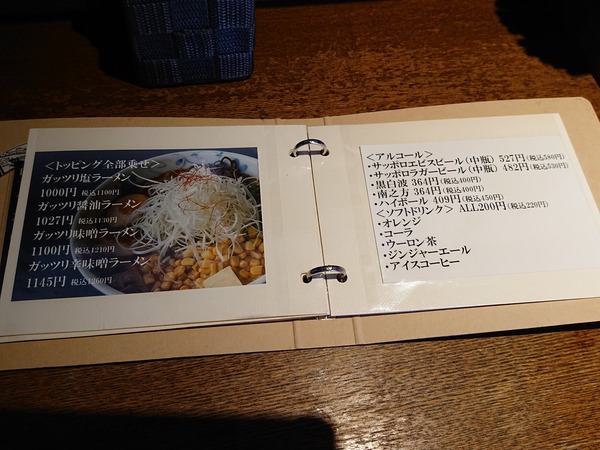 <トッピング全部乗せ>
ガッツリ塩ラーメン
1000円 税込1100円
ガッツリ醤油ラーメン
1027円 税込1130円
ガッツリ味噌ラーメン
1100円 税込1210円
ガッツリ辛味噌ラーメン
1145円 税込1260円
<アルコール>
・サッポロエビスビール(中瓶) 527円(税込580円)
・サッポロラガービール(中瓶) 482円(税込530円)
・黒白波 364円(税込400円)
・南之方 364円(税込400円)
・ハイボール 409円(税込450円)
<ソフトドリンク> ALL200円(税込220円)
・オレンジ
・コーラ
・ウーロン茶
・ジンジャーエール
・アイスコーヒー